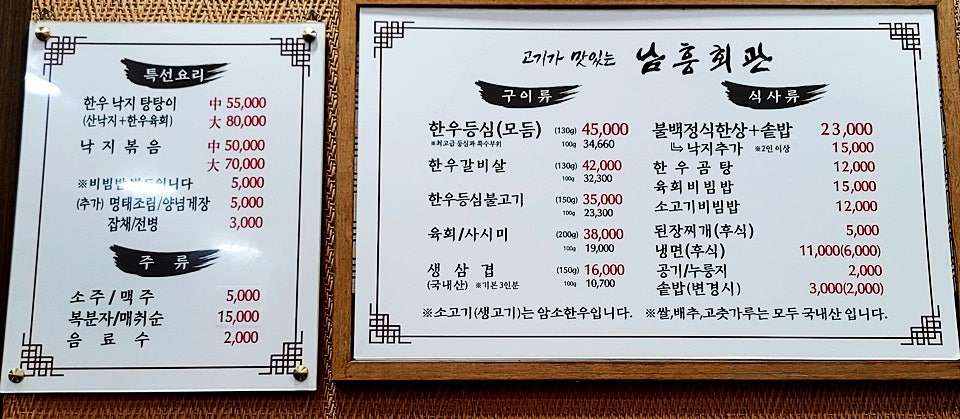 특선요리
한우 낙지 탕탕이 中 55,000
(산낙지+한우육회) 大 80,000
낙지볶음 中 50,000
大 70,000
※비빔밥 별도입니다 5,000
(추가) 명태조림/양념게장 5,000
잡채/전병 3,000
주류
소주/맥주 5,000
복분자/매취순 15,000
음료수 2,000
고기가 맛있는 남흥회관
구이류
한우등심(모듬) (130g) 45,000
※최고급 등심과 특수부위 100g 34,660
한우갈비살 (130g) 42,000
100g 32,300
한우등심불고기 (150g) 35,000
100g 23,300
육회/사시미 (200g) 38,000
100g 19,000
생삼겹 (150g) 16,000
(국내산) ※기본 3인분 100g 10,700
식사류
불백정식한상+솥밥 23,000
낙지추가 ※2인 이상 15,000
한우곰탕 12,000
육회비빔밥 15,000
소고기비빔밥 12,000
된장찌개(후식) 5,000
냉면(후식) 11,000(6,000)
공기/누룽지 2,000
솥밥(변경시) 3,000(2,000)
※소고기(생고기)는 암소한우입니다. ※쌀,배추,고춧가루는 모두 국내산 입니다.